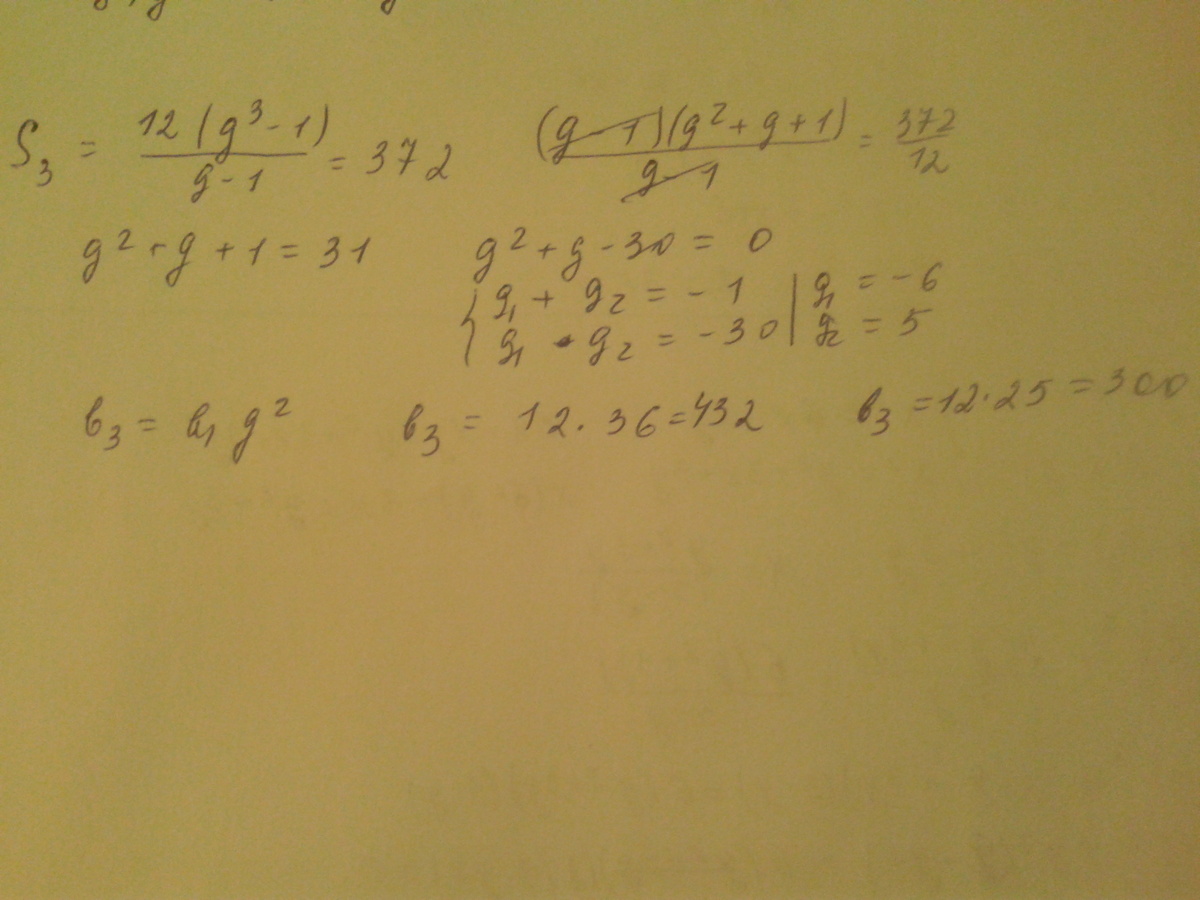 S₃ = 12(g³-1)/g-1 = 372 (g-1)(g²+g+1)/g-1 = 372/12
g²+g+1=31 g²+g-30=0
{g₁+g₂=-1 | g₁=-6
{g₁·g₂=-30 | g₂=5
b₃=b₁g² b₃=12·36=432 b₃=12·25=300